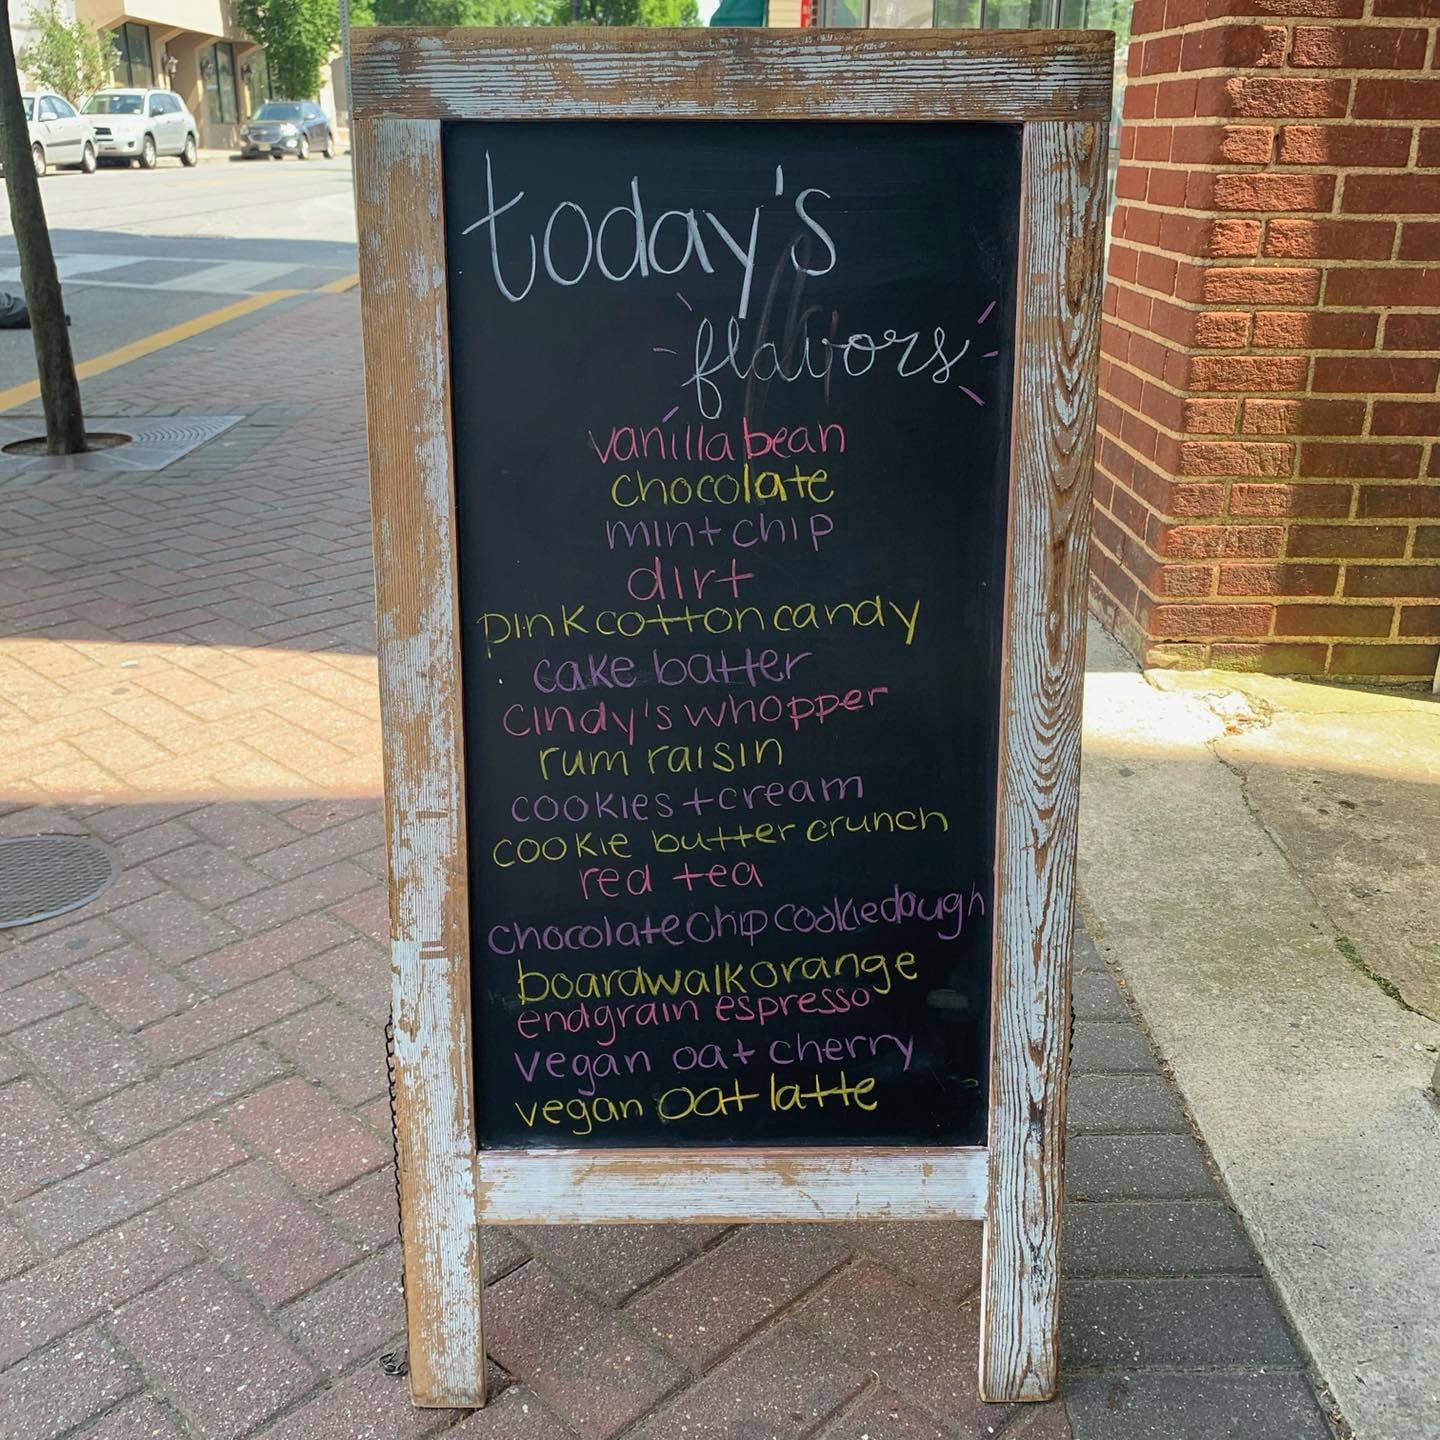 today's
flavors
vanilla bean
chocolate
mint chip
dirt
pink cotton candy
cake batter
cindy's whopper
rum raisin
cookies + cream
cookie butter crunch
red tea
chocolate chip cookie dough
boardwalk orange
endgrain espresso
vegan oat cherry
vegan oat latte